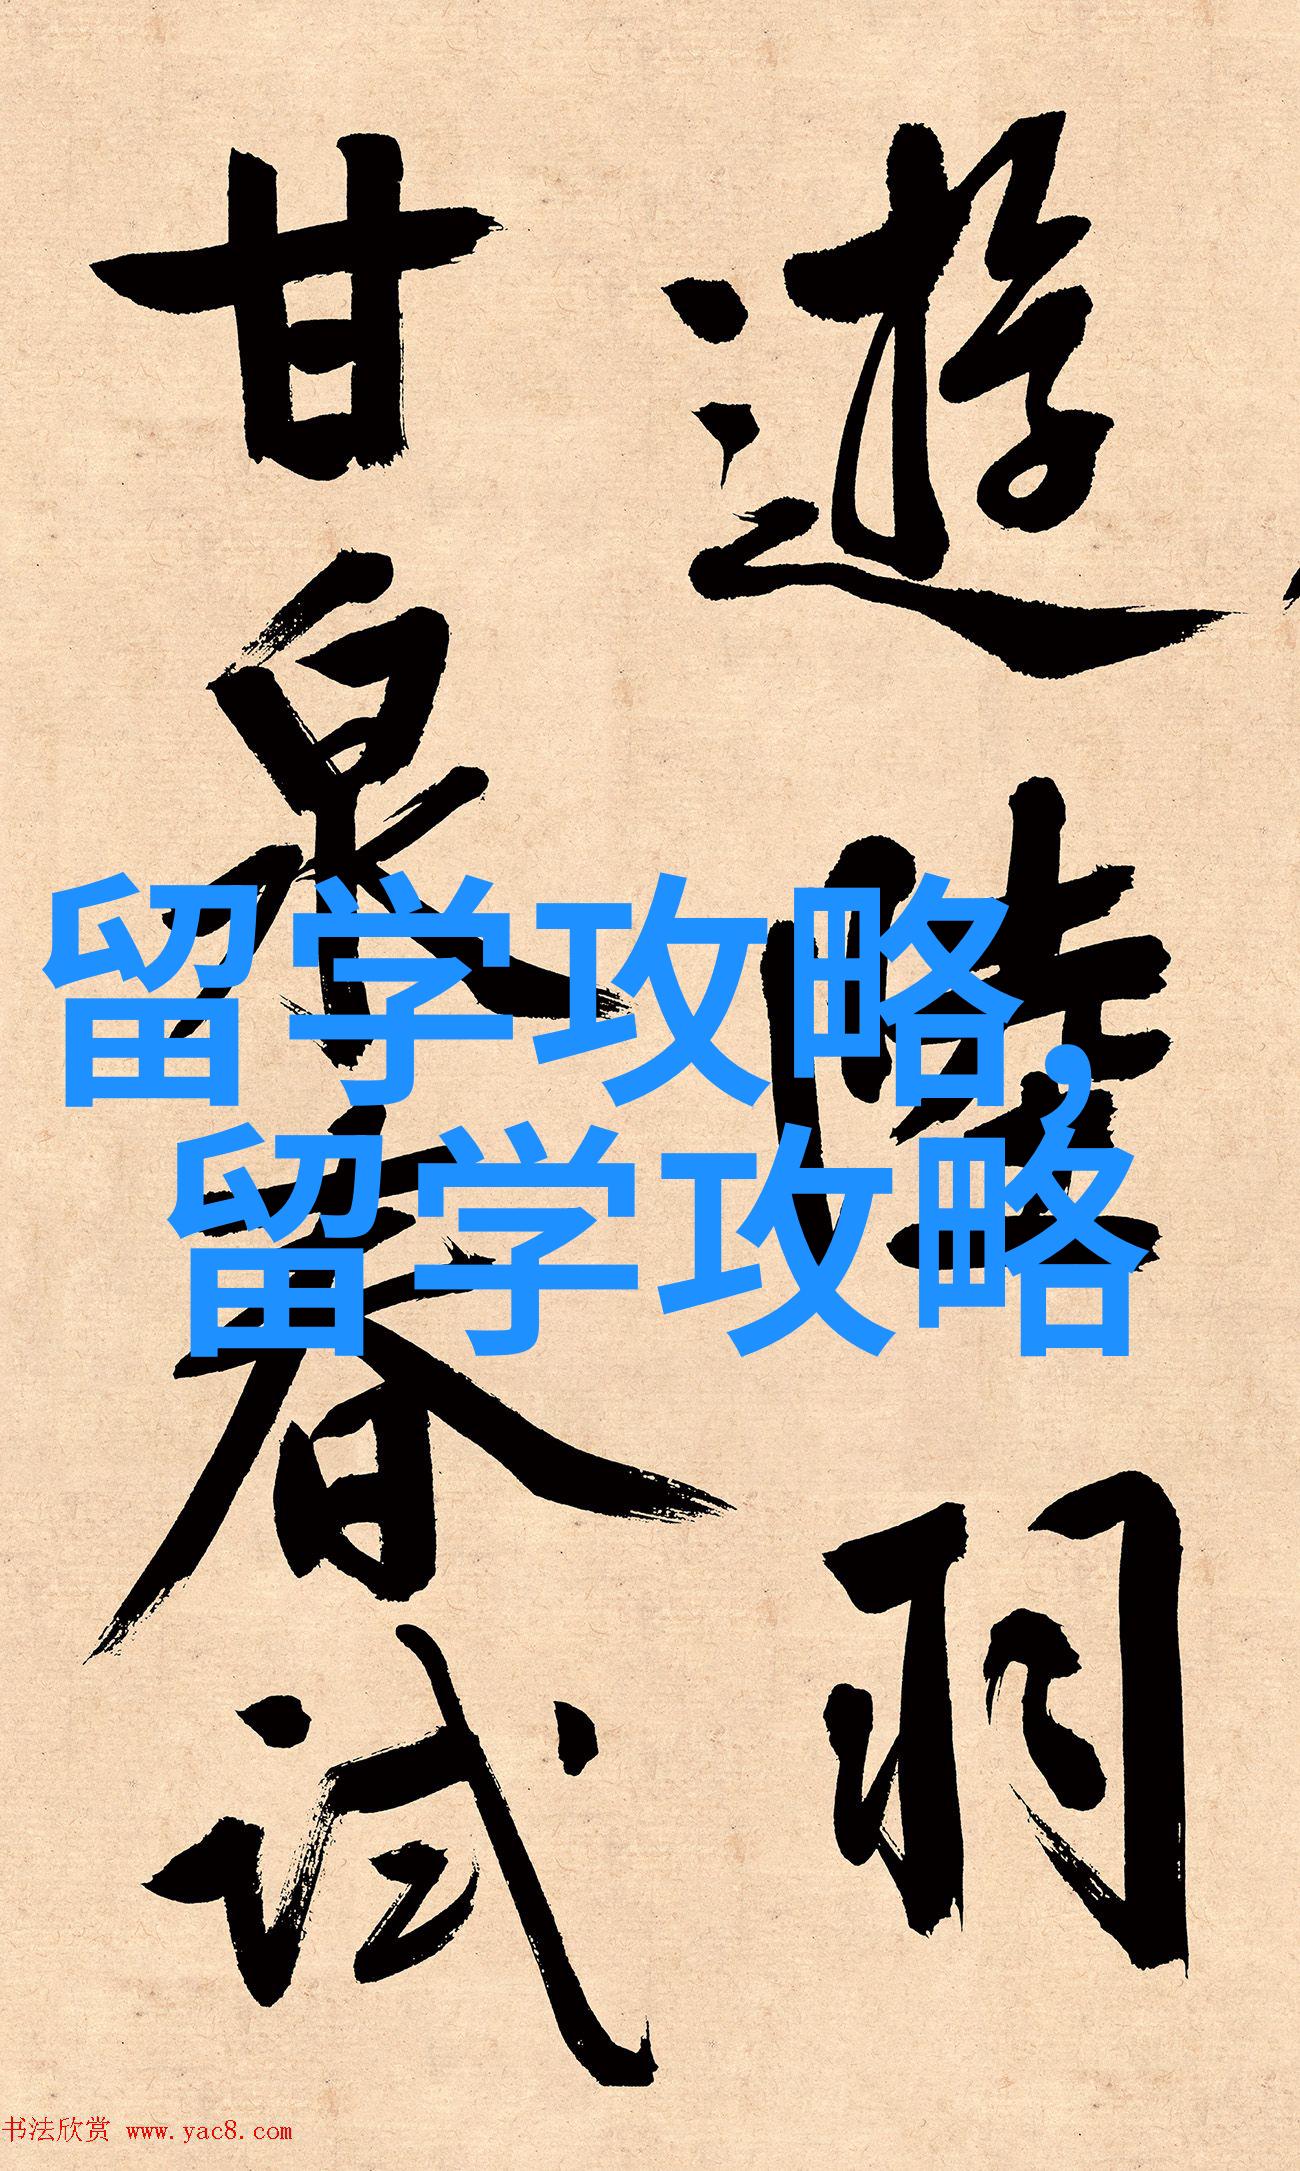 遊陸羽
甘泉春試
留学攻略,
留学攻略
书法欣赏 www.yac8.com